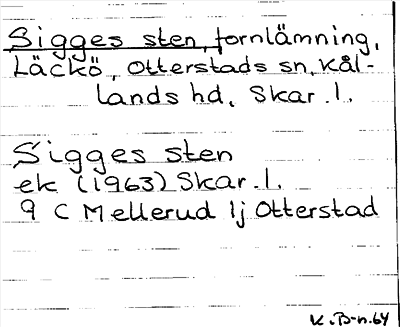 Sigges sten, fornlämning,
Läckö, Otterstads sn, Kål-
lands hd, Skar. l.
Sigges sten
ek (1963) Skar. l.
9 C Mellerud lj Otterstad
K. B-n. 64